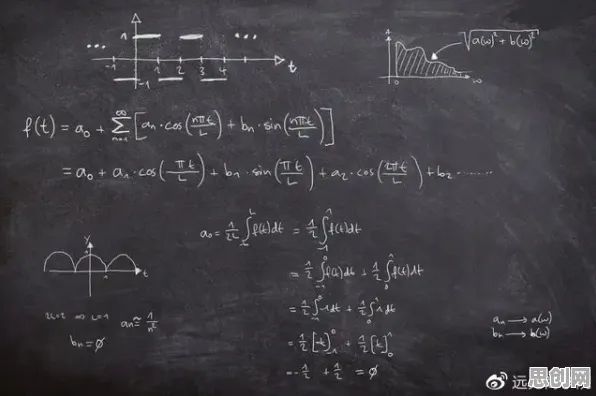 ... 1 ...
-1 1 2 3 4 t
-1
√(a(ω)² + b(ω)²)
0 ω
f(t) = a₀ + ∑ₙ₌₁^∞ [aₙ·cos(nπt/L) + bₙ·sin(nπt/L)]
= a₀ + a₁·cos(πt/L) + b₁·sin(πt/L) + a₂·cos(2πt/L) + b₂·.......
a₀ = 1/2L ∫₋L^L f(t)dt = 1/2 ∫₋₁^1 f(t)dt
= 1/2 ∫₋₁^0 f(t)dt + 1/2 ∫₀^1 f(t)dt
= 1/2 ∫₋₁^0 -1dt + 1/2 ∫₀^1 1dt
= 1/2 [t]₋₁^0 + 1/2 [t]₀^1
= -1/2 + 1/2 = Ø
y
-1 1 t
2L=2 ⇒ L=1 aₙ ≈ 1/n²
bₙ = Ø
aₙ → a(ω)
bₙ → b(ω)
思创网